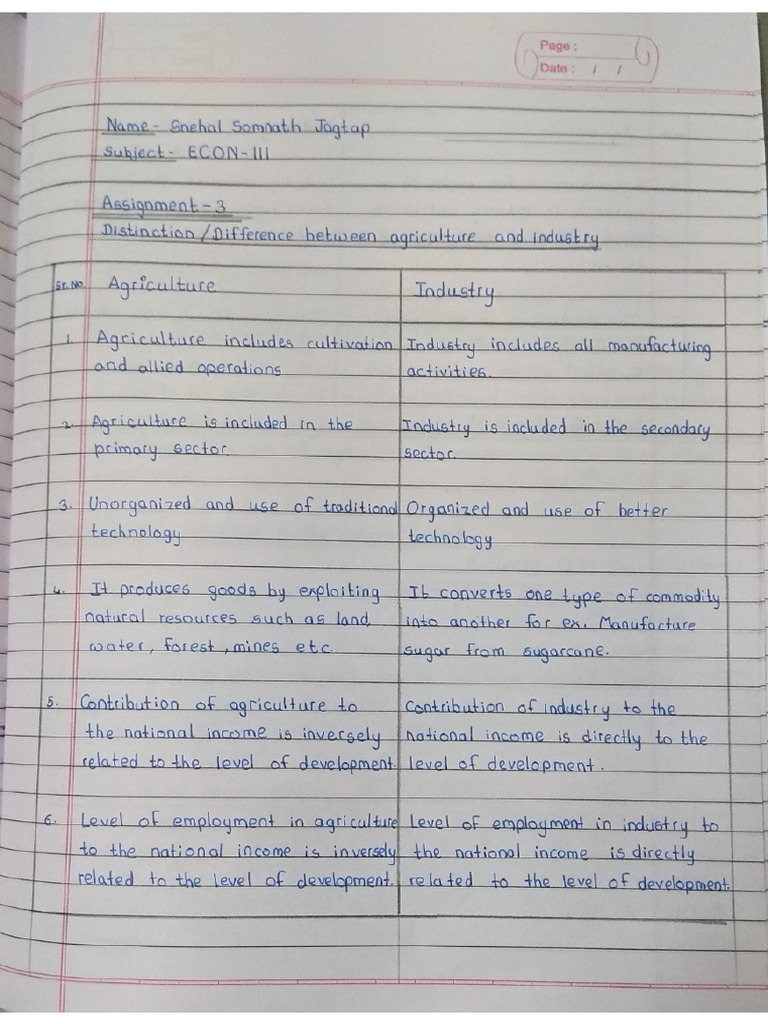 Page :
Date : / /
Name - Snehal Somnath Jagtap
Subject - ECON-III
Assignment - 3
Distinction/Difference between agriculture and industry
Sr.No. Agriculture
Industry
1. Agriculture includes cultivation
and allied operations
Industry includes all manufacturing
activities.
2. Agriculture is included in the
primary sector.
Industry is included in the secondary
sector.
3. Unorganized and use of traditional
technology
Organized and use of better
technology
4. It produces goods by exploiting
natural resources such as land,
water, forest, mines etc.
It converts one type of commodity
into another for ex. Manufacture
sugar from sugarcane.
5. Contribution of agriculture to
the national income is inversely
related to the level of development.
Contribution of industry to the
national income is directly to the
level of development.
6. Level of employment in agriculture
to the national income is inversely
related to the level of development.
Level of employment in industry to
the national income is directly
related to the level of development.